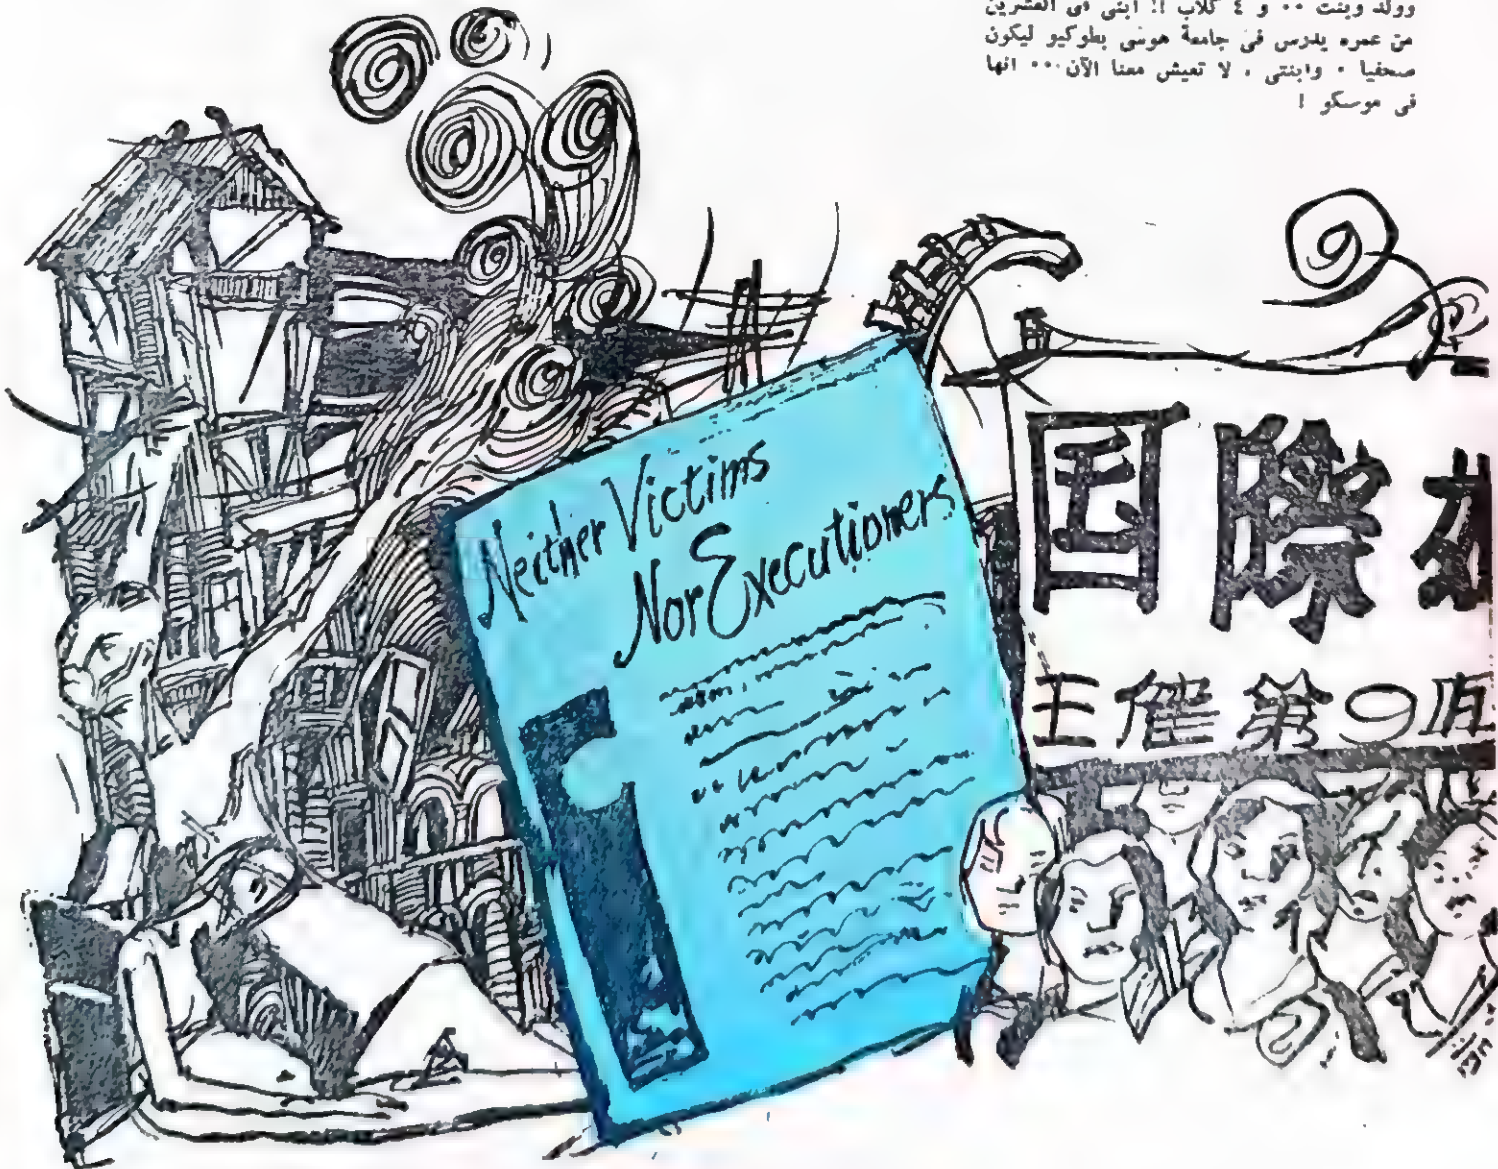 وولد وبنت ٠٠ و ٤ كلاب !! ابنى فى العشرين
من عمره يدرس فى جامعة هوسى بطوكيو ليكون
صحفيا ٠ وابنتى ، لا تعيش معنا الآن ٠٠٠ انها
فى موسكو !
Neither Victims
Nor Executioners
国際
主催第9